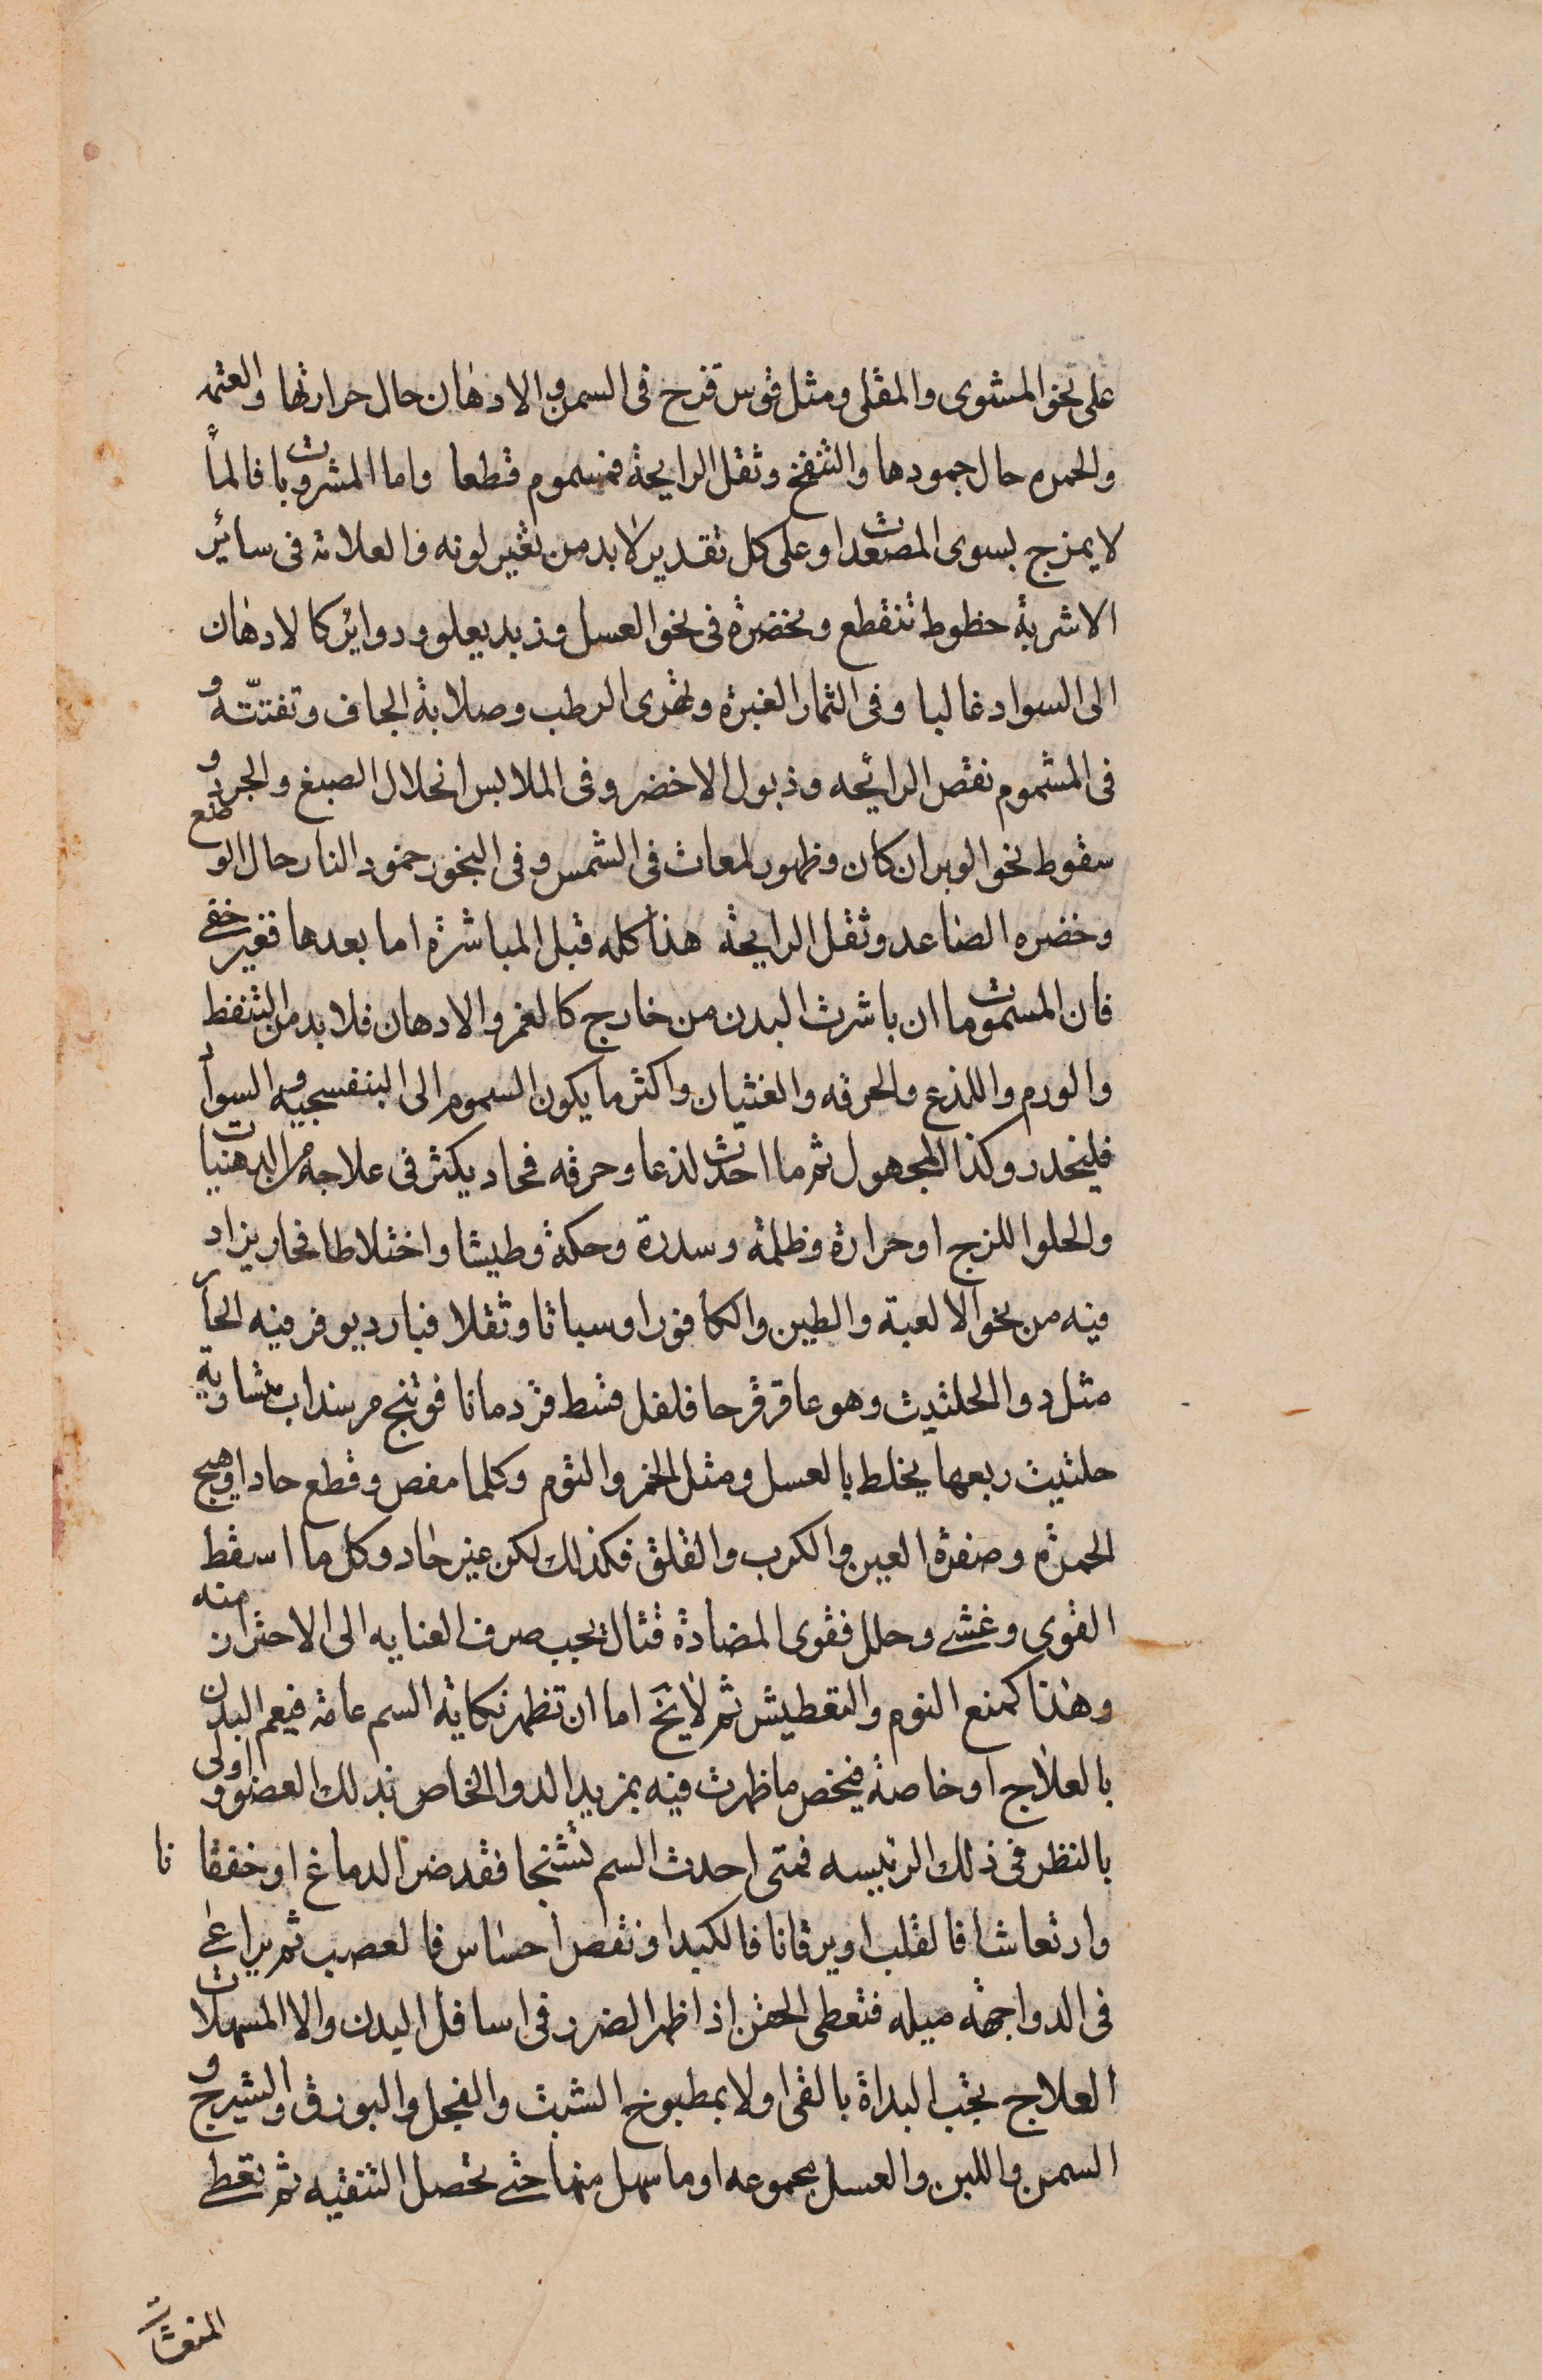 على نحو المشوى والمقلى ومثل قوس قزح فى السمن والادهان حال حرارتها والعتمه
والحمره حال جمودها والتنفخ وثقل الرايحة فمسموم قطعا واما المشروبات فالما
لا يمزج بسوى المصعدات وعلى كل تقدير لا بد من تغير لونه والعلامة فى سائر
الاشربة خطوط تنقطع وبخضرة فى نحو العسل وزبد يعلو ودوائر كالادهان
الى السواد غالبا وفى الثمار الغبرة وتهرى الرطب وصلابة الجاف وتفتته و
فى المشموم نقص الرائحه وذبول الاخضر وفى الملابس انحلال الصبغ والجرد و
سقوط نحو الوبر ان كان وظهور لمعات فى الشمس وفى البخور خمود النار حال الوضع
وخضره الصاعد وثقل الرايحة هذا كله قبل المباشرة اما بعدها فغير خفى
فان المسمومات ان باشرت البدن من خارج كالغمر والادهان فلا بد من التنفط
والورم واللذع والحرقه والغثيان واكثر ما يكون السموم الى البنفسجيه والسواد
فليحذر وكذا المجهول ثم ما احدث لذعا وحرقه فحاد يكثر فى علاجه من الدهنيات
والحلو اللزج او حرارة وظلمة وسدرة وحكة وطيشا واختلاطا فحار يزاد
فيه من نحو الالعبة والطين والكافور او سباتا وثقلا فبارد يوفر فيه الحار
مثل دوا الحلتيث وهو عاقرقرحا فلفل قسط قردمانا فوتنج مر سنداب متساوية
حلتيث ربعها يخلط بالعسل ومثل الخمر والثوم وكلما مغص وقطع حاد او هيج
الحمرة وصفرة العين والكرب والقلق فكذلك لكن غير حاد وكل ما اسقط
القوى وغشى وحلل فقوى المضادة قتال يجب صرف العناية الى الاحتراز منه
وهذا كمنع النوم والتعطيش ثم لا يخ اما ان تظهر نكاية السم عامة فيعم البدن
بالعلاج او خاصة فيخص ما ظهرت فيه بمزيد الدوا الخاص بذلك العضو واولى
بالنظر فى ذلك الرئيسه فمتى احدث السم تشنجا فقد ضر الدماغ او خفقانا
وارتعاشا فالقلب او يرقانا فالكبد او نقص احساس فالعصب ثم يراعى
فى الدوا جهة ميله فتعطى الحقن اذا ظهر الضرر فى اسافل البدن والا المسهلات
العلاج يجب البداة بالقى اولا بمطبوخ الشبت والفجل والبورق والشيرج و
السمن واللبن والعسل مجموعه او ما سهل منها حتى تحصل التنقيه ثم تعطى